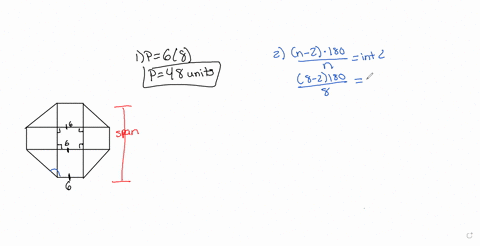 1) P=6(8)
P=48 units
2) (n-2)·180
n
=int∠
(8-2)180
8
=
6
6
6
span